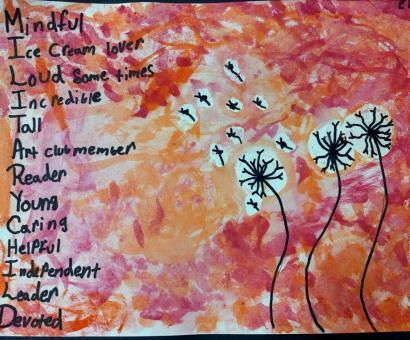 Mindful
Ice Cream lover
Loud Some times
Incredible
Tall
Art club member
Reader
Young
Caring
HelPful
Independent
Leader
Devoted